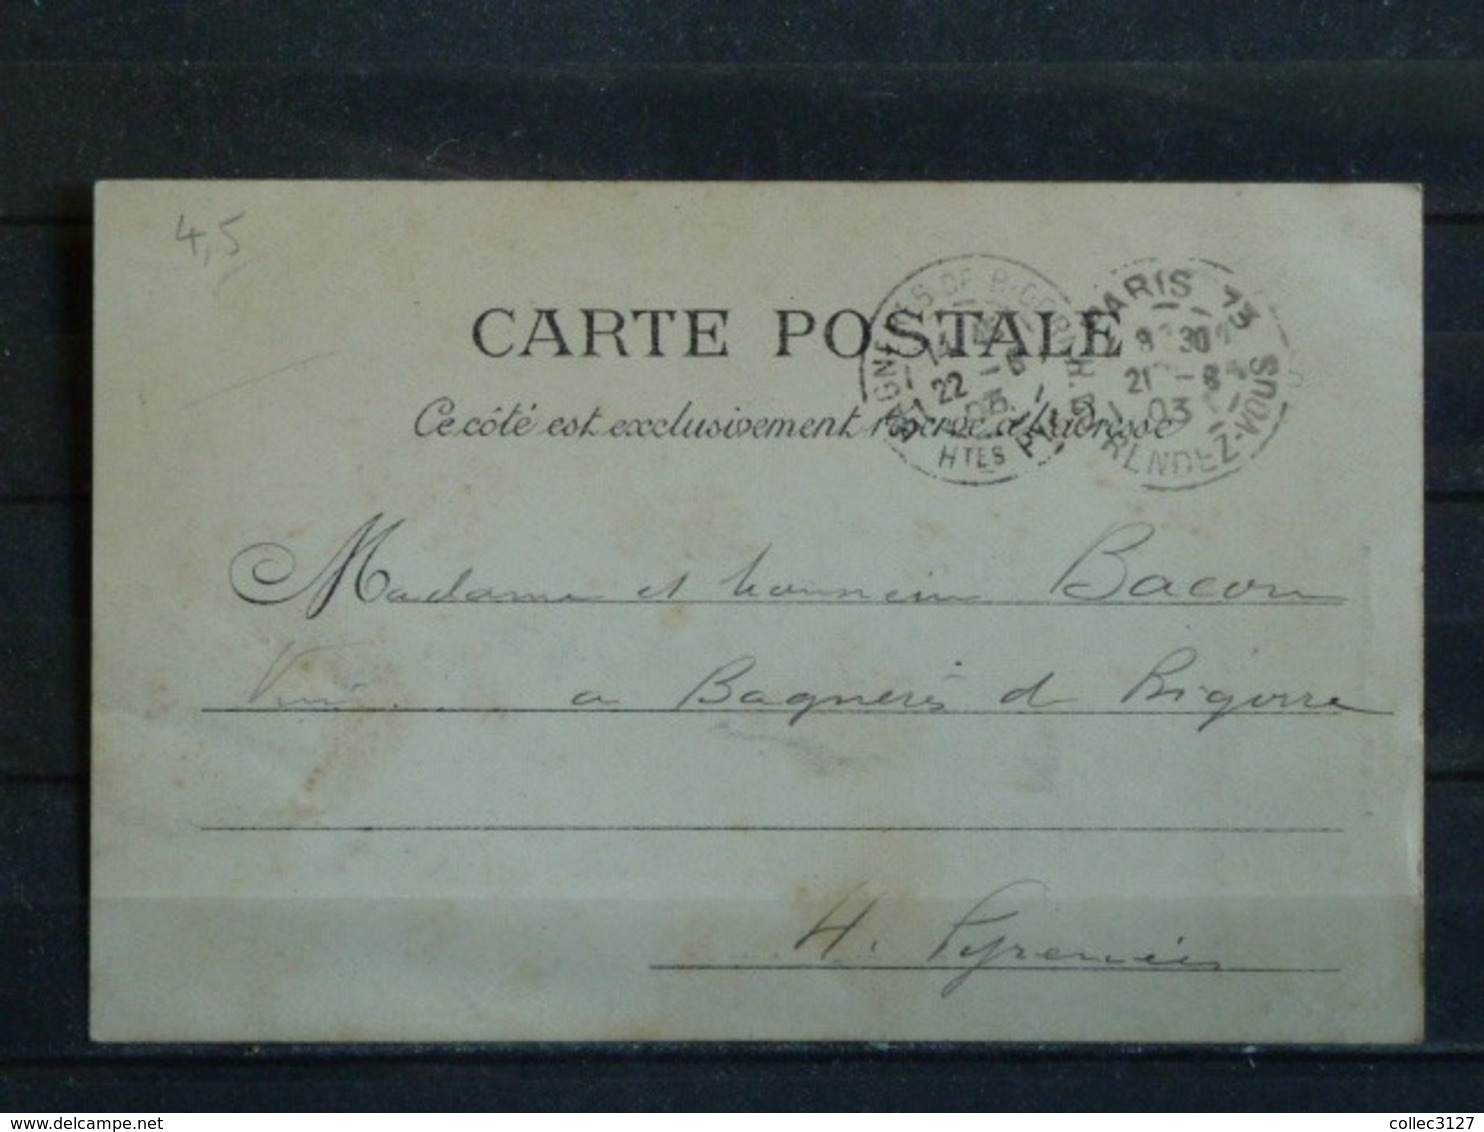 4,5
CARTE POSTALE
Ce côté est exclusivement réservé à l'adresse
BAGNERES DE BIGORRE
22 - 8
03
HTES PYR
PARIS 73
8 30
21 - 8
03
R. DU RENDEZ-VOUS
Madame et Monsieur Bacon
a Bagnerès de Bigorre
H. Pyrenées
collec3127